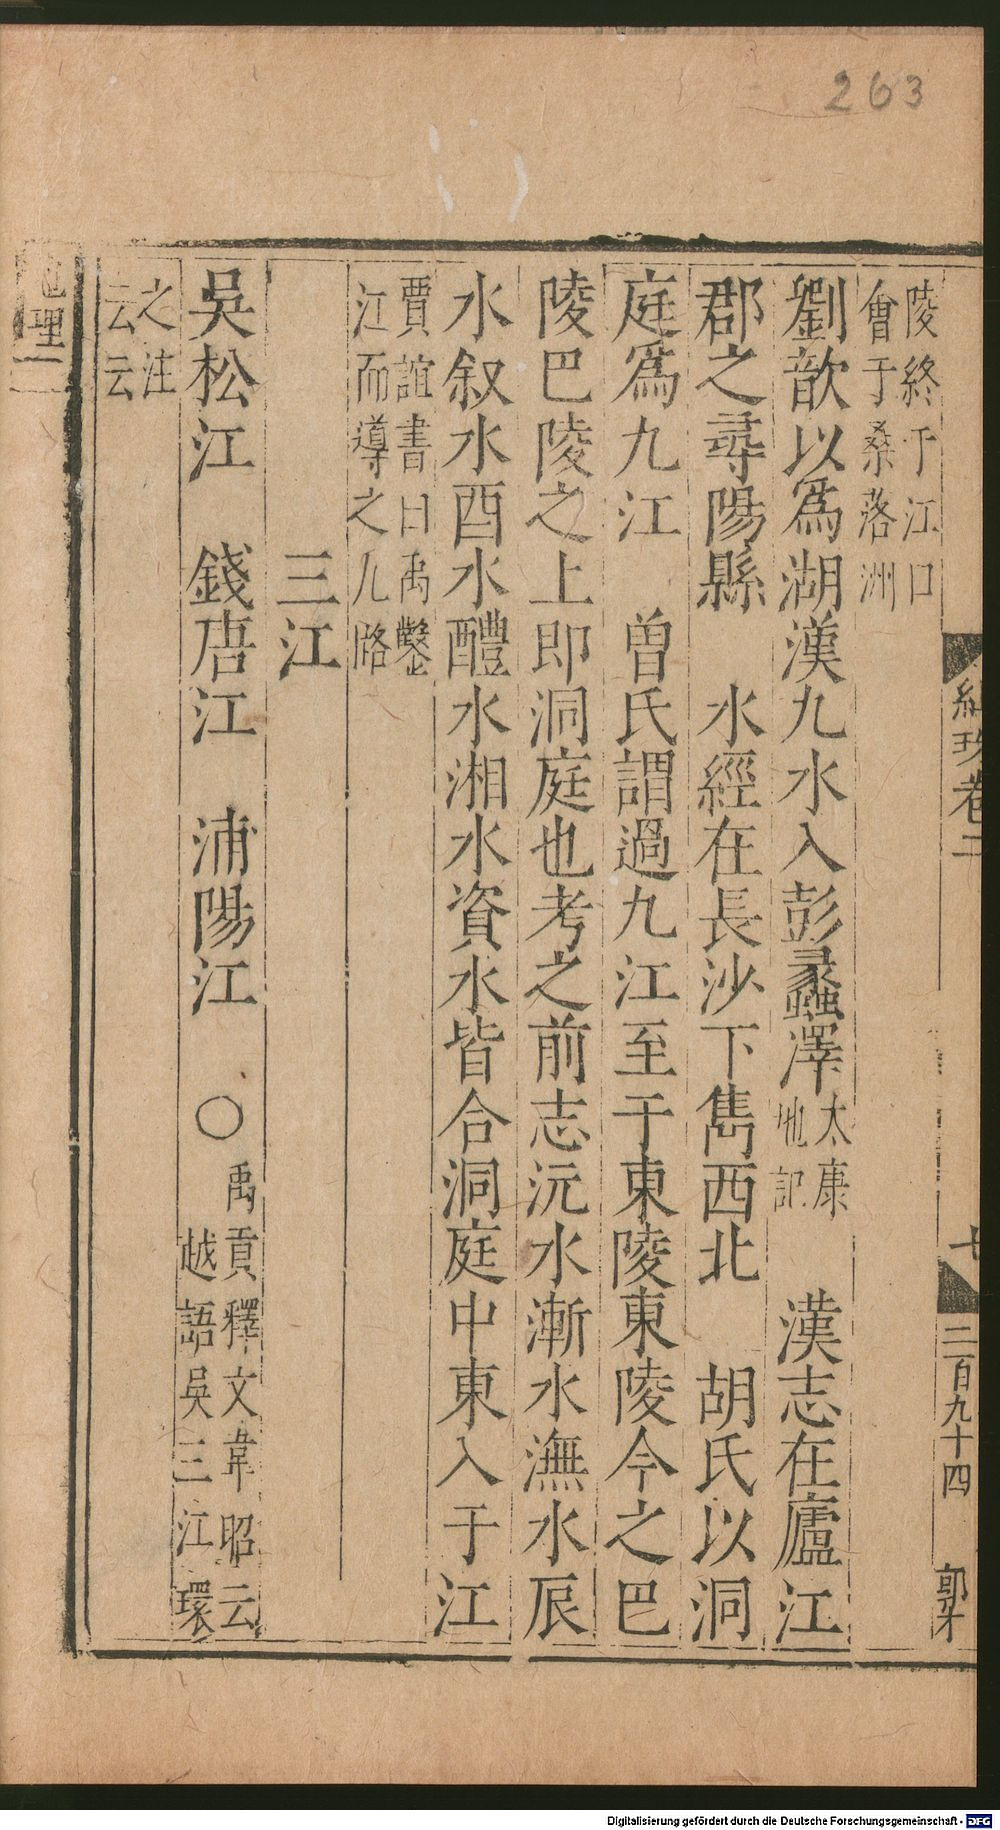 263
陵終于江口
會于桑落洲
劉歆以為湖漢九水入彭蠡澤太康地記　漢志在廬江
郡之尋陽縣　水經在長沙下雋西北　胡氏以洞
庭為九江　曾氏謂過九江至于東陵東陵今之巴
陵巴陵之上即洞庭也考之前志沅水漸水潕水辰
水叙水酉水醴水湘水資水皆合洞庭中東入于江
賈誼書曰禹鑿
江而導之九路
三江
吳松江　錢唐江　浦陽江　○禹貢釋文韋昭云
越語吳三江環
之注
云云
地理二
紺珠卷二
七
二百九十四
郭才
Digitalisierung gefördert durch die Deutsche Forschungsgemeinschaft - DFG